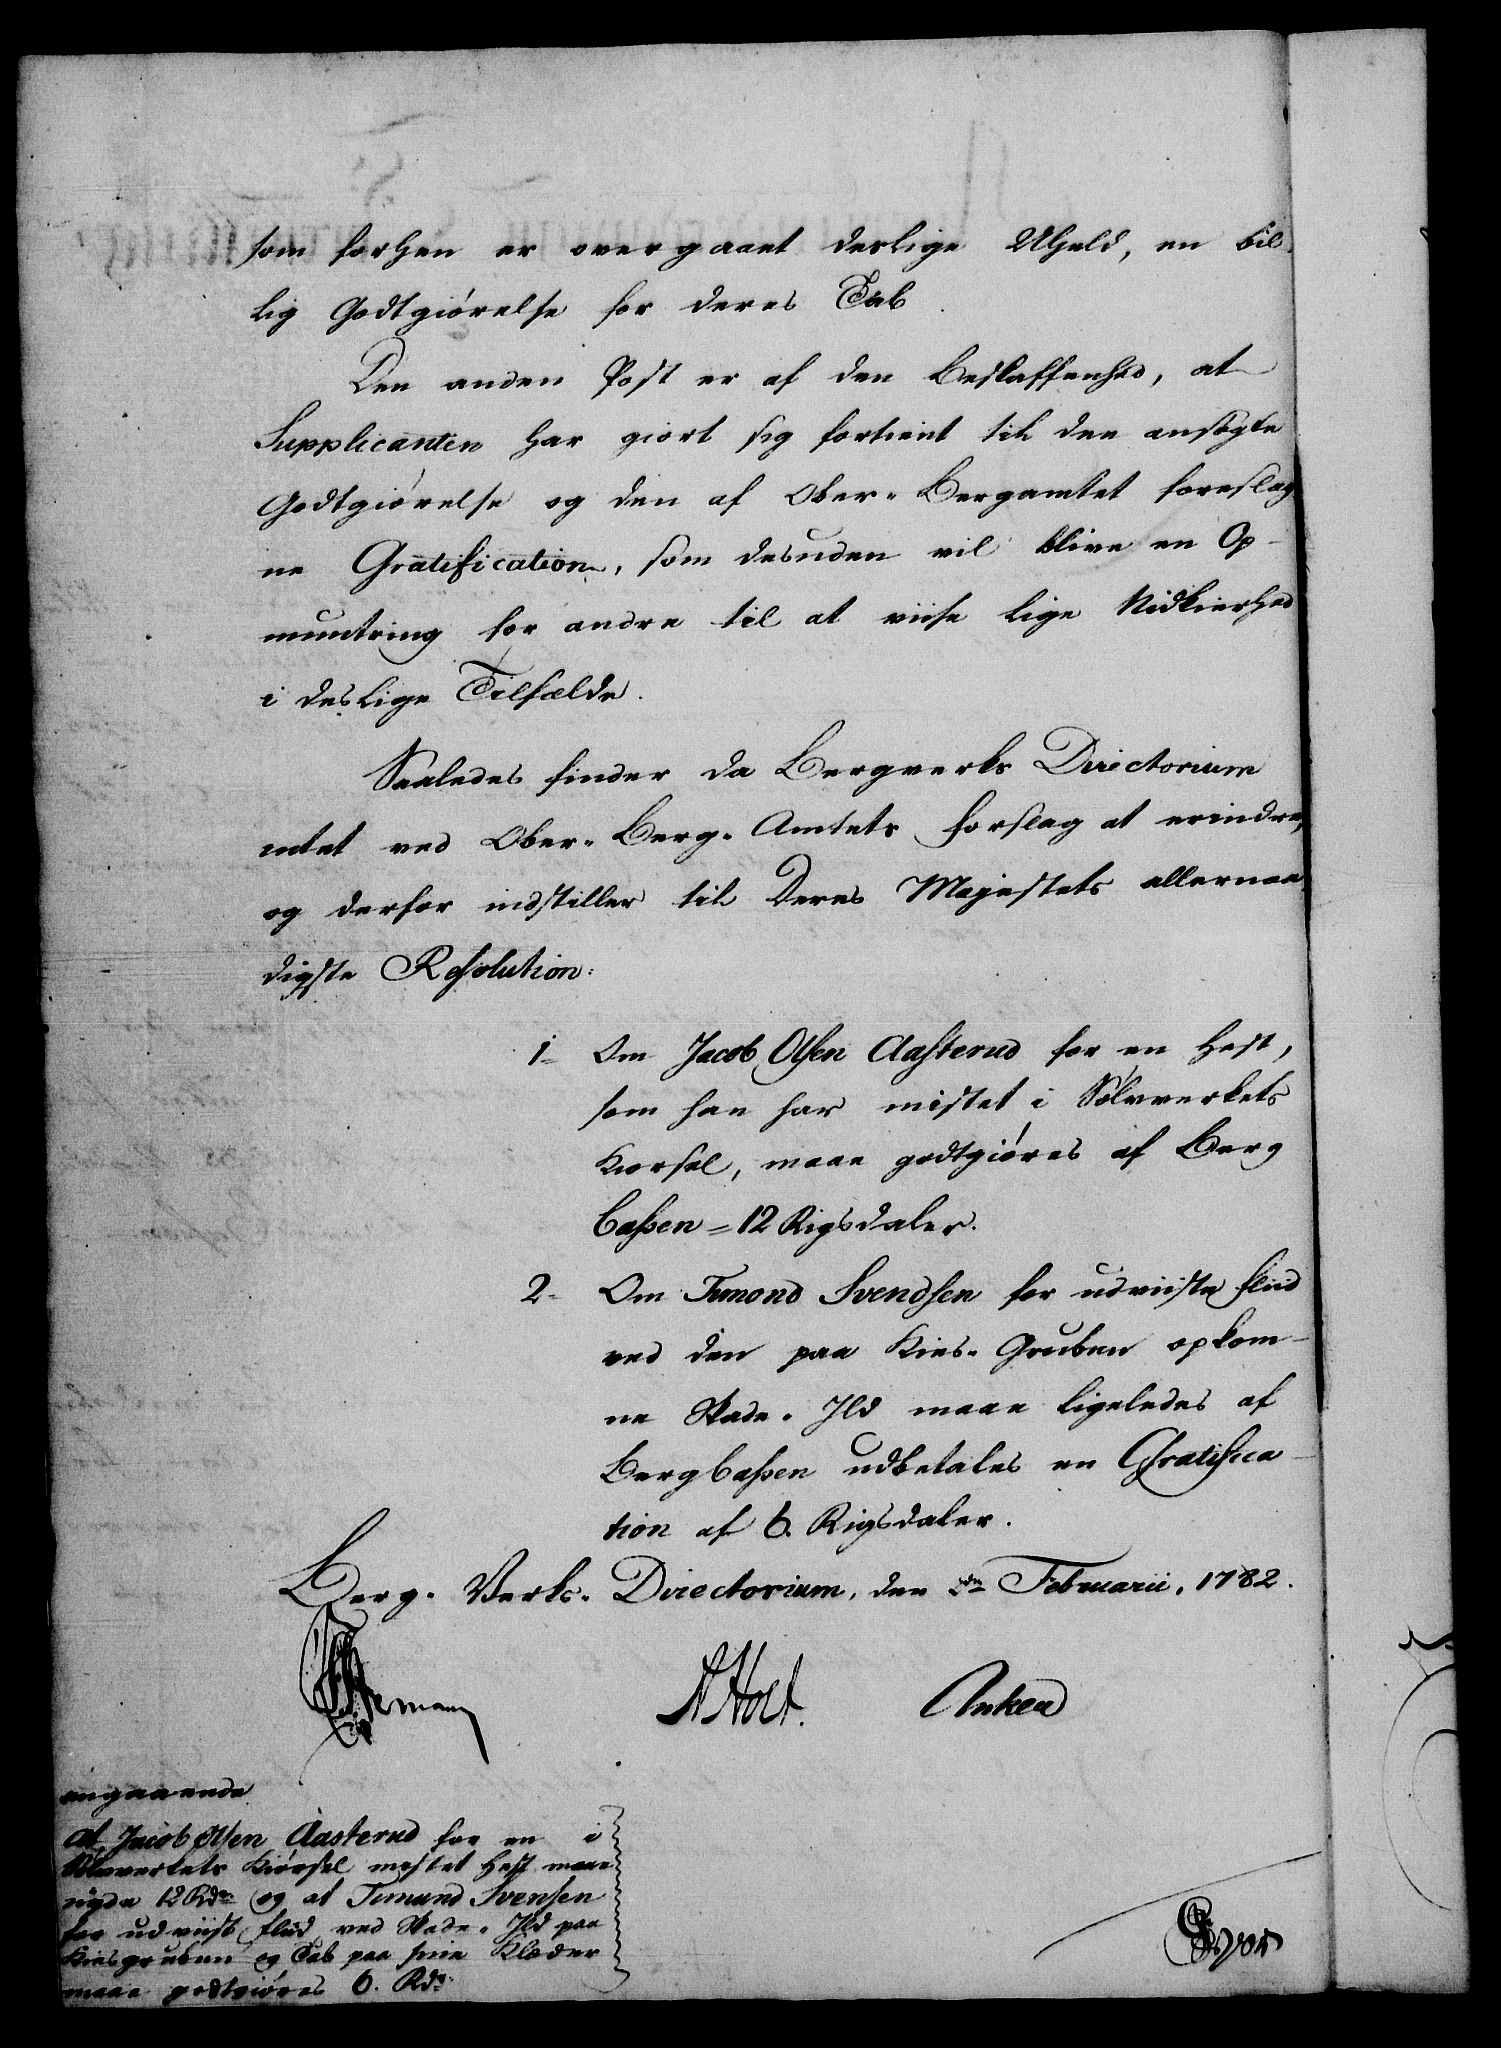 som forhen er overgaaet deslige Uheld, en bil-
lig Godtgiörelse for deres Tab.
Den anden Post er af den Beskaffenhed, at
Supplicanten har giort sig fortient til den ansögte
Godtgiörelse og den af Ober-Bergamtet foreslag-
ne Gratification, som desuden vil blive en Op-
muntring for andre til at viise lige Nidkierhed
i deslige Tilfælde.
Saaledes finder da Bergverks Directorium
intet ved Ober-Berg-Amtets Forslag at erindre,
og derfor indstiller til Deres Majestets allernaa-
digste Resolution:
1- Om Jacob Olsen Aasterud for en Hest,
som han har mistet i Sölvverkets
Kiörsel, maae godtgiöres af Berg
Caßen = 12 Rigsdaler.
2- Om Timond Svendsen for udviiste Fliid
ved den paa Kies-Gruben opkom-
ne Skade-Ild maae ligeledes af
Bergcaßen udbetales en Gratifica-
tion af 6. Rigsdaler.
Berg-Verks-Directorium, den Februarii, 1782.
Hemann AHolt. Anker
angaaende
at Jacob Olsen Aasterud for en i
Sölvverkets Kiörsel mistet Hest maae
nyde 12 Rdr og at Timund Svensen
for udviist Fliid ved Skade-Ild paa
Kiesgruben og Tab paa sine Klæder
maae godtgiöres 6. Rdr.